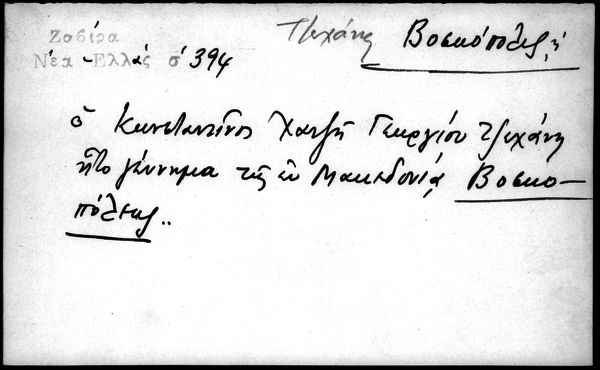 Ζαβίρα
Νέα-Ελλάς σ 394
Τζεχάνη
Βοσκόπολις, ἡ
ὁ Κωνσταντῖνος Χατζῆ Γεωργίου Τζεχάνη
ἦτο γέννημα τῆς ἐν Μακεδονίᾳ Βοσκο-
πόλεως..